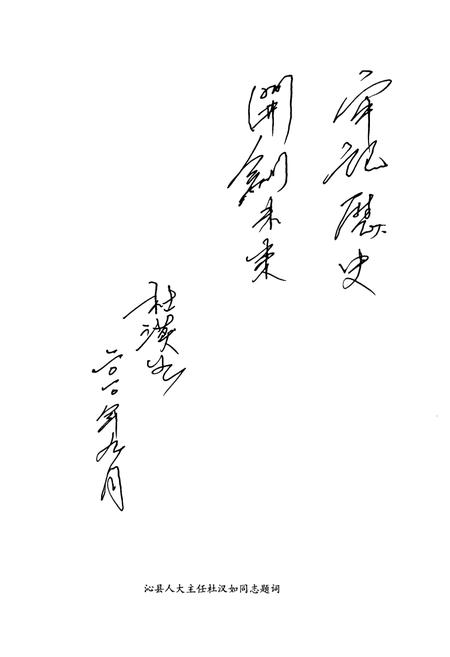 牢记歷史
開創未来
杜漢如
二〇一〇年九月
沁县人大主任杜汉如同志题词